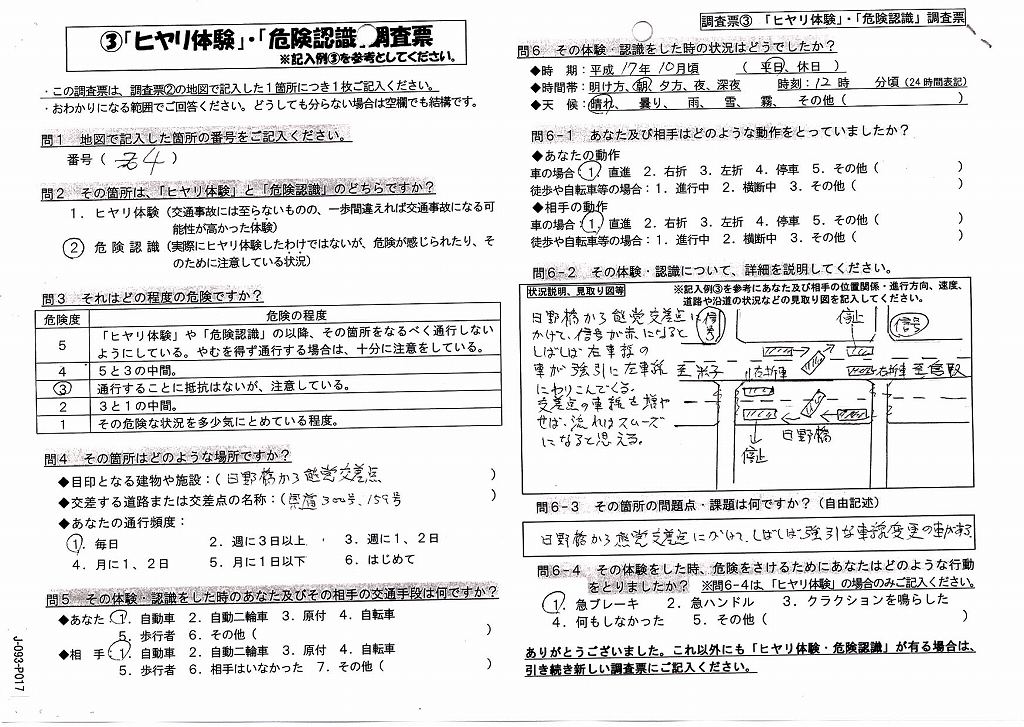 ③「ヒヤリ体験」・「危険認識」調査票
※記入例③を参考としてください。
・この調査票は、調査票②の地図で記入した1箇所につき1枚ご記入ください。
・おわかりになる範囲でご回答ください。どうしても分らない場合は空欄でも結構です。
問1 地図で記入した箇所の番号をご記入ください。
番号( 4 )
問2 その箇所は、「ヒヤリ体験」と「危険認識」のどちらですか?
1.ヒヤリ体験(交通事故には至らないものの、一歩間違えれば交通事故になる可
能性が高かった体験)
② 危険認識(実際にヒヤリ体験したわけではないが、危険が感じられたり、そ
のために注意している状況)
問3 それはどの程度の危険ですか?
危険度 危険の程度
5 「ヒヤリ体験」や「危険認識」の以降、その箇所をなるべく通行しない
ようにしている。やむを得ず通行する場合は、十分に注意をしている。
4 5と3の中間。
③ 通行することに抵抗はないが、注意している。
2 3と1の中間。
1 その危険な状況を多少気にとめている程度。
問4 その箇所はどのような場所ですか?
◆目印となる建物や施設:(日野橋から 交差点 )
◆交差する道路または交差点の名称:(県道300号、159号 )
◆あなたの通行頻度:
①.毎日 2.週に3日以上 3.週に1、2日
4.月に1、2日 5.月に1日以下 6.はじめて
問5 その体験・認識をした時のあなた及びその相手の交通手段は何ですか?
◆あなた:①.自動車 2.自動二輪車 3.原付 4.自転車
5.歩行者 6.その他( )
◆相 手:①.自動車 2.自動二輪車 3.原付 4.自転車
5.歩行者 6.相手はいなかった 7.その他( )
J-093-P017
調査票③ 「ヒヤリ体験」・「危険認識」調査票
問6 その体験・認識をした時の状況はどうでしたか?
◆時 期:平成 17年 10月頃 ( 平日、休日 )
◆時間帯:明け方、朝、夕方、夜、深夜 時刻:12時 分頃(24時間表記)
◆天 候:晴れ、 曇り、 雨、 雪、 霧、 その他( )
問6-1 あなた及び相手はどのような動作をとっていましたか?
◆あなたの動作
車の場合:①.直進 2.右折 3.左折 4.停車 5.その他( )
徒歩や自転車等の場合:1.進行中 2.横断中 3.その他( )
◆相手の動作
車の場合:①.直進 2.右折 3.左折 4.停車 5.その他( )
徒歩や自転車等の場合:1.進行中 2.横断中 3.その他( )
問6-2 その体験・認識について、詳細を説明してください。
状況説明、見取り図等
※記入例③を参考にあなた及び相手の位置関係・進行方向、速度、
道路や沿道の状況などの見取り図を記入してください。
日野橋から 交差点に
かけて、信号が赤になると
しばしば右車線の
車が強引に左車線
にわりこんでくる。
交差点の車線を増や
せば、流れはスムーズ
になると思える。
信号
停止
信号
至米子
右折車
右折車
至鳥取
日野橋
停止
問6-3 その箇所の問題点・課題は何ですか?(自由記述)
日野橋から 交差点にかけて、しばしば強引な車線変更の車がある
問6-4 その体験をした時、危険をさけるためにあなたはどのような行動
をとりましたか? ※問6-4は、「ヒヤリ体験」の場合のみご記入ください。
①.急ブレーキ 2.急ハンドル 3.クラクションを鳴らした
4.何もしなかった 5.その他( )
ありがとうございました。これ以外にも「ヒヤリ体験・危険認識」が有る場合は、
引き続き新しい調査票にご記入ください。